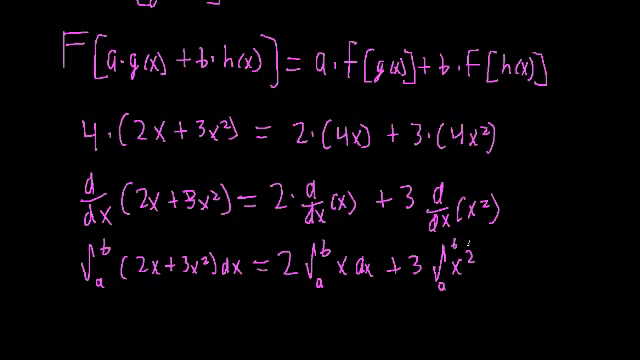 F[a·g(x) + b·h(x)] = a·F[g(x)] + b·F[h(x)]
4·(2x + 3x²) = 2·(4x) + 3·(4x²)
d/dx (2x + 3x²) = 2·d/dx (x) + 3 d/dx (x²)
∫ₐᵇ (2x + 3x²) dx = 2 ∫ₐᵇ x dx + 3 ∫ₐᵇ x²